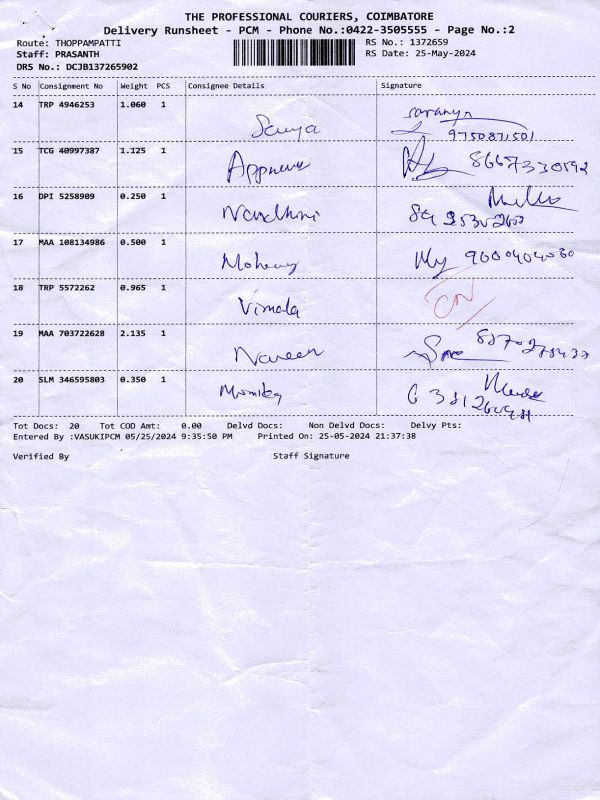 THE PROFESSIONAL COURIERS, COIMBATORE
Delivery Runsheet - PCM - Phone No.:0422-3505555 - Page No.:2
Route: THOPPAMPATTI RS No.: 1372659
Staff: PRASANTH RS Date: 25-May-2024
DRS No.: DCJB137265902
S No Consignment No Weight PCS Consignee Details Signature
14 TRP 4946253 1.060 1 saranya
9750871501
15 TCG 40997387 1.125 1 8667330592
16 DPI 5258909 0.250 1 Nandhini
17 MAA 108134986 0.500 1 9600404030
18 TRP 5572262 0.965 1 Vimala
19 MAA 703722628 2.135 1 Naveen
20 SLM 346595803 0.350 1
Tot Docs: 20 Tot COD Amt: 0.00 Delvd Docs: Non Delvd Docs: Delvy Pts:
Entered By :VASUKIPCM 05/25/2024 9:35:50 PM Printed On: 25-05-2024 21:37:38
Verified By Staff Signature